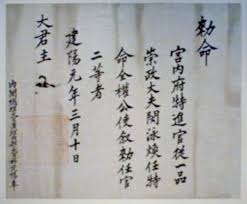 勅命
宮内府特進官從一品
崇政大夫閔泳煥任特
命全權公使叙勅任官
二等者
建陽元年三月十日
大君主